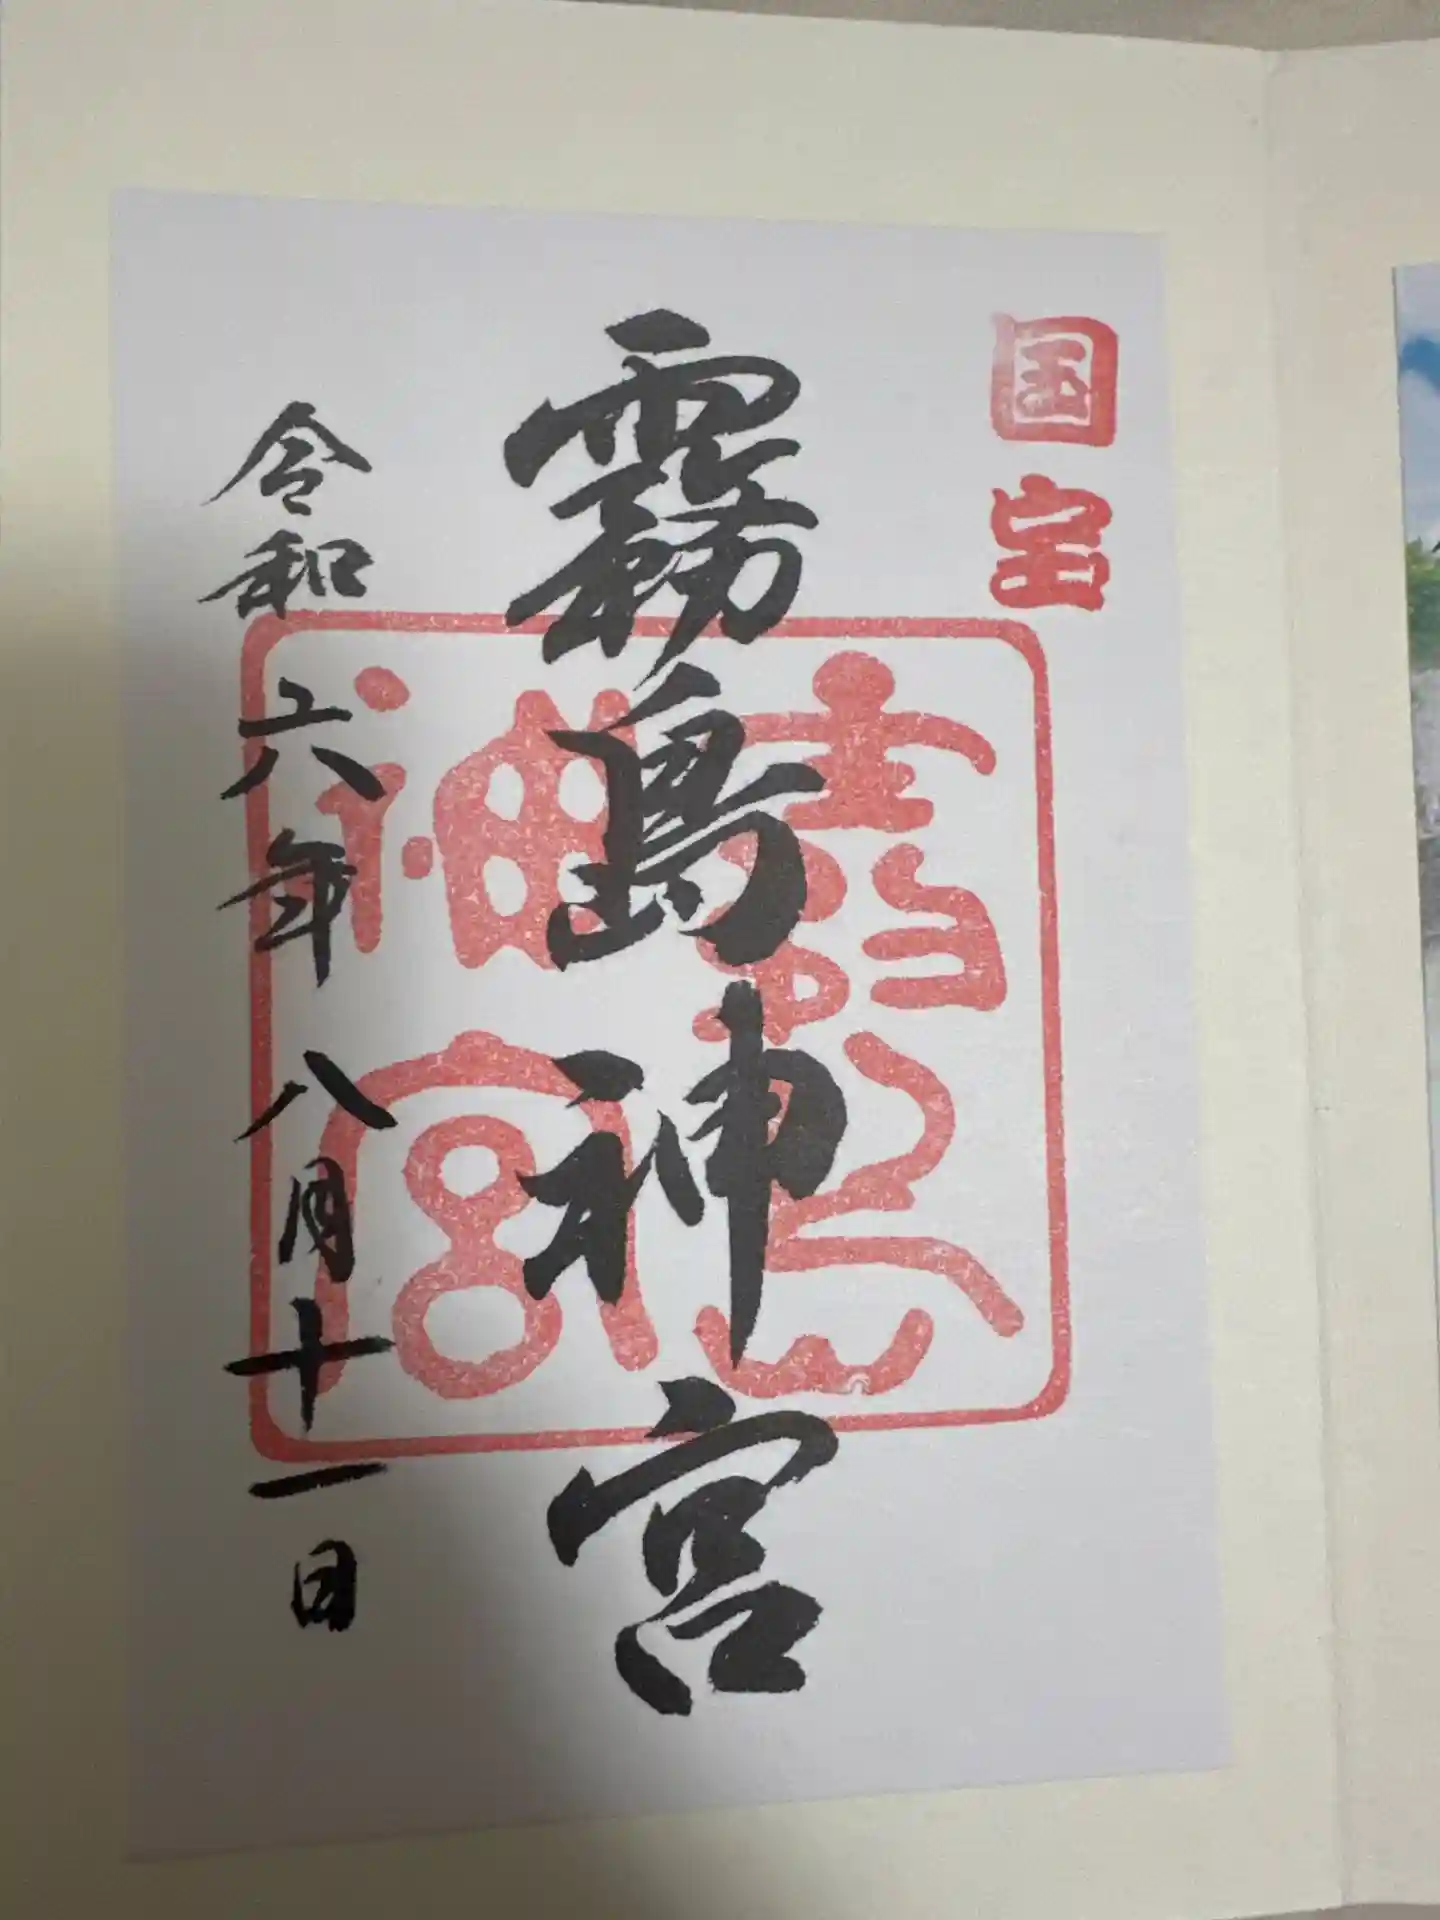 国宝
霧島神宮
霧島神宮
令和六年八月十一日